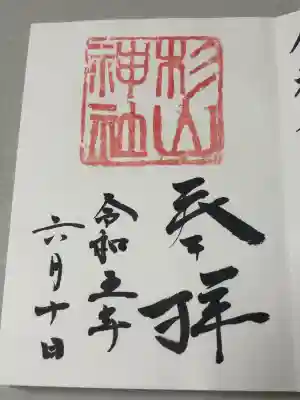 杉山
神社
奉拝
令和五年
六月十日